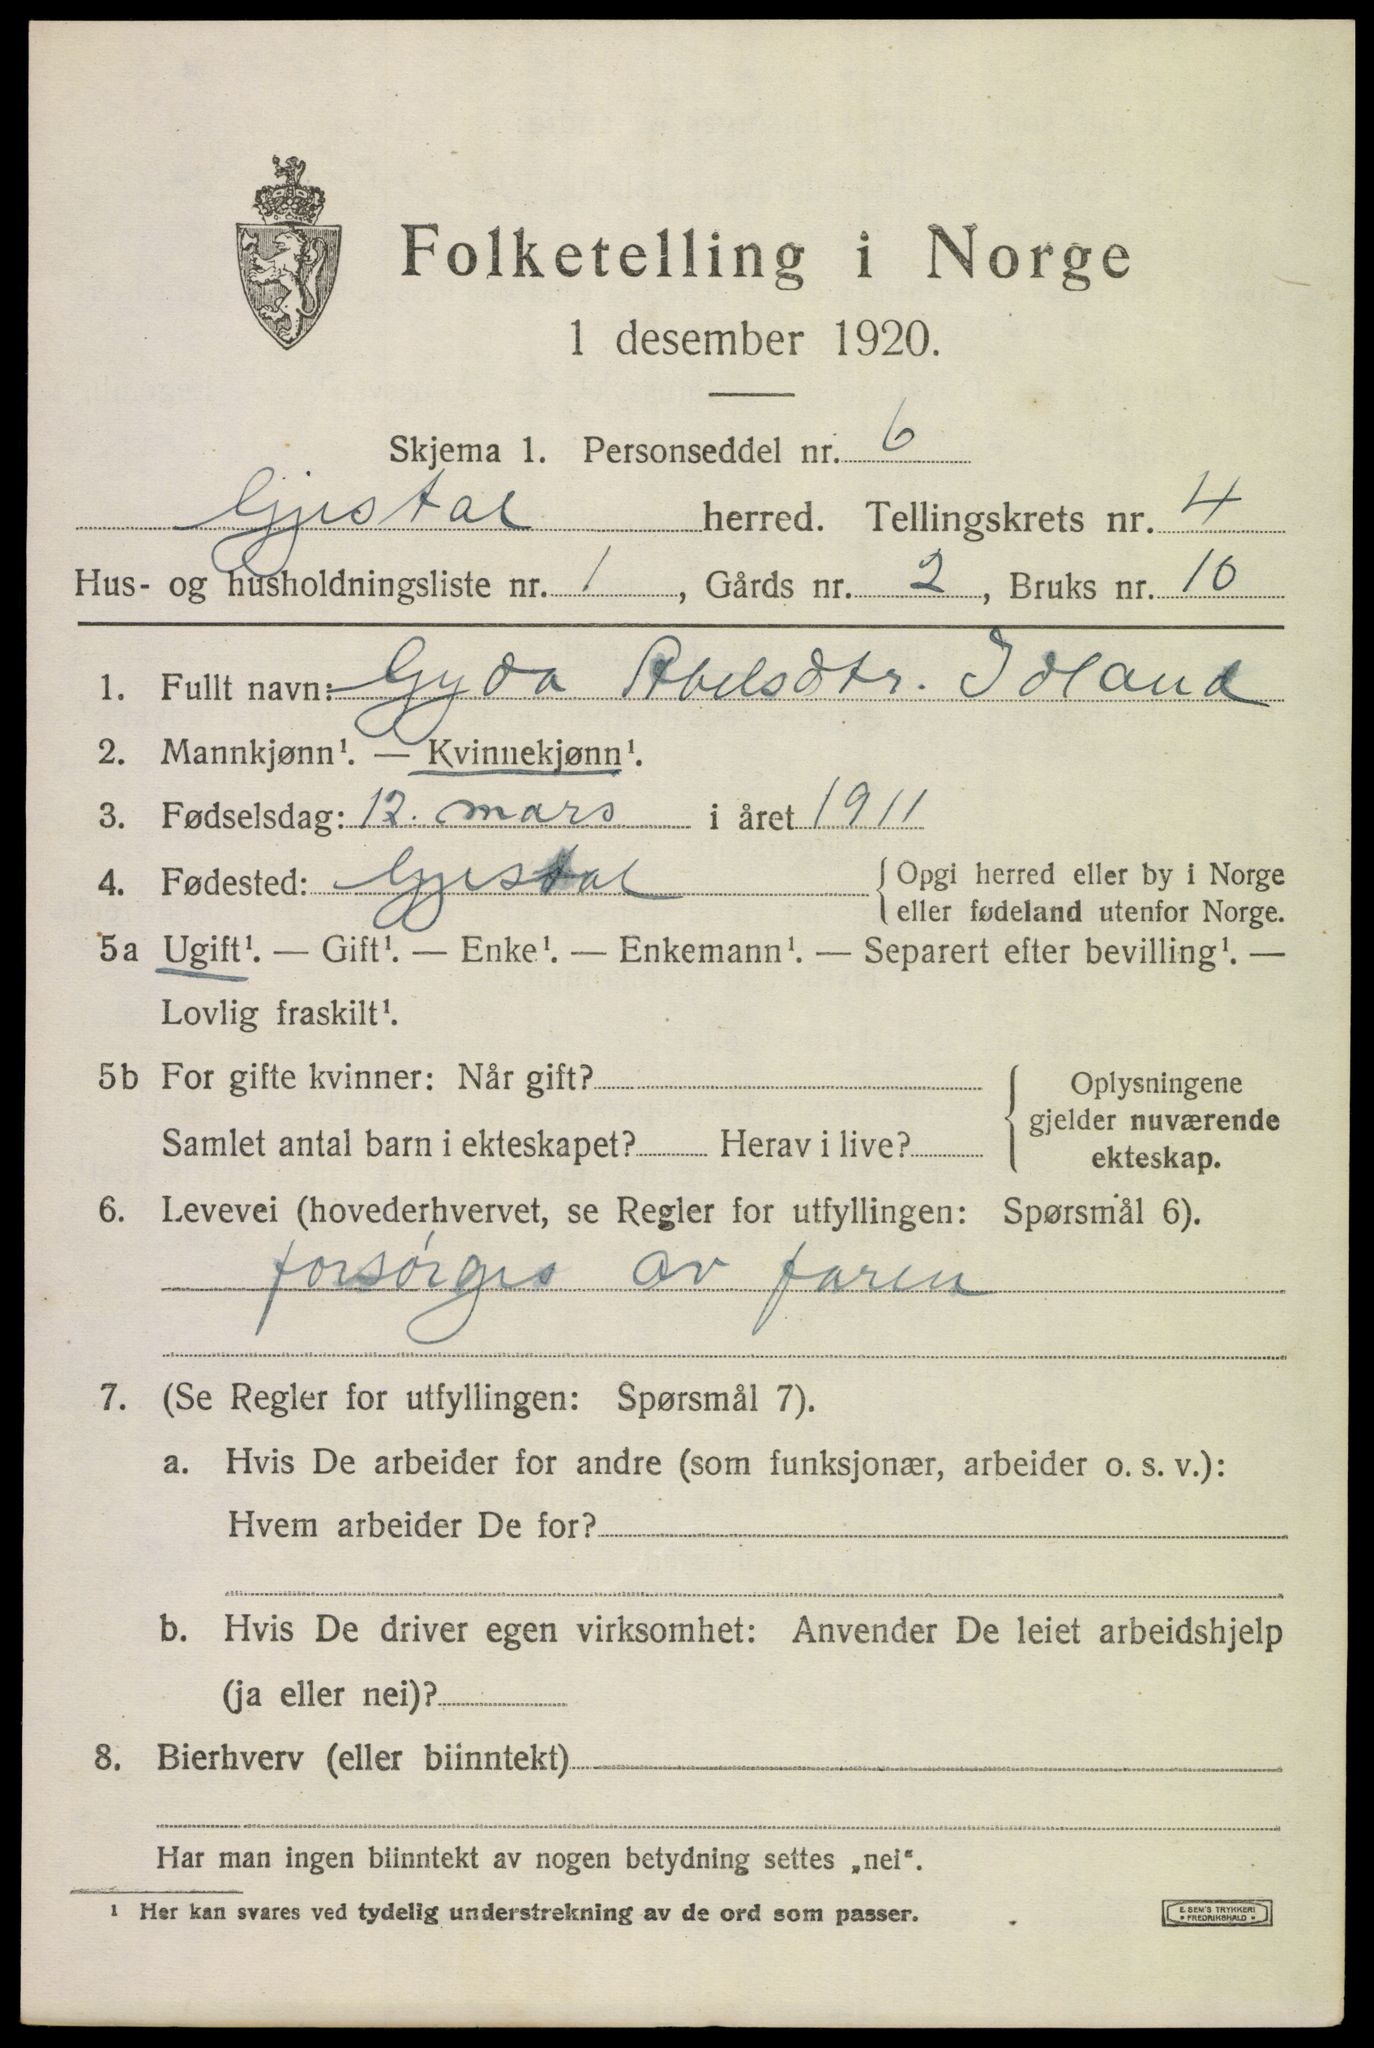 Folketelling i Norge
1 desember 1920.
Skjema 1. Personseddel nr. 6
Gjestal herred. Tellingskrets nr. 4
Hus- og husholdningsliste nr. 1, Gårds nr. 2, Bruks nr. 10
1. Fullt navn: Gyda Abelsdtr. Idland
2. Mannkjønn¹. — Kvinnekjønn¹.
3. Fødselsdag: 12. mars i året 1911
4. Fødested: Gjestal { Opgi herred eller by i Norge
eller fødeland utenfor Norge.
5a Ugift¹. — Gift¹. — Enke¹. — Enkemann¹. — Separert efter bevilling¹. —
Lovlig fraskilt¹.
5b For gifte kvinner: Når gift? { Oplysningene
gjelder nuværende
Samlet antal barn i ekteskapet? Herav i live?
ekteskap.
6. Levevei (hovederhvervet, se Regler for utfyllingen: Spørsmål 6).
forsørges av faren
7. (Se Regler for utfyllingen: Spørsmål 7).
a. Hvis De arbeider for andre (som funksjonær, arbeider o. s. v.):
Hvem arbeider De for?
b. Hvis De driver egen virksomhet: Anvender De leiet arbeidshjelp
(ja eller nei)?
8. Bierhverv (eller biinntekt)
Har man ingen biinntekt av nogen betydning settes „nei".
¹ Her kan svares ved tydelig understrekning av de ord som passer.
E. SEM'S TRYKKERI
• FREDRIKSHALD •